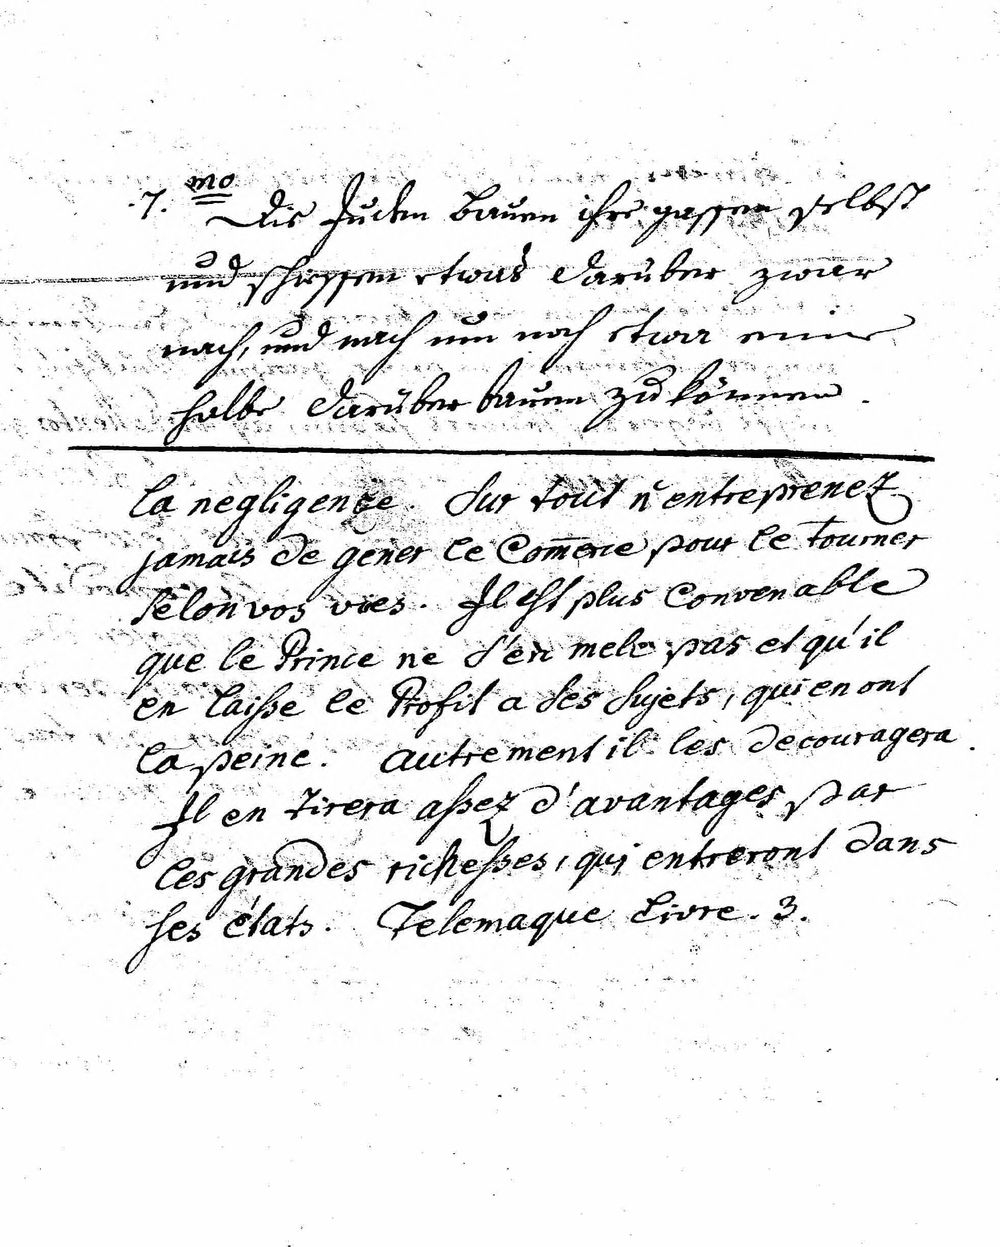 7.mo Die Juden Bauen ihre gassen selbst
und schiessen etwas darüber zwar
nach, und nach um noch etwa eine
halbe darüber bauen zu können.
la negligence. Sur tout n'entreprenez
jamais de gener le Com̄erce pour le tourner
selon vos vües. Il est plus Convenable
que le Prince ne s'en mele pas et qu'il
en laisse le Profit a ses sujets, qui en ont
la peine. autrement il les decouragera.
Il en tirera assez d'avantages par
les grandes richesses, qui entreront dans
ses états. Telemaque Livre. 3.